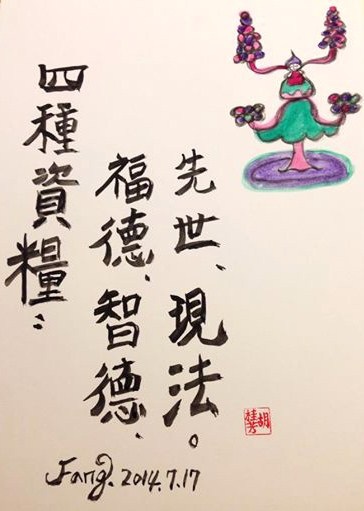 四種資糧：
福德、智德、
先世、現法。
Fang. 2014.7.17
胡